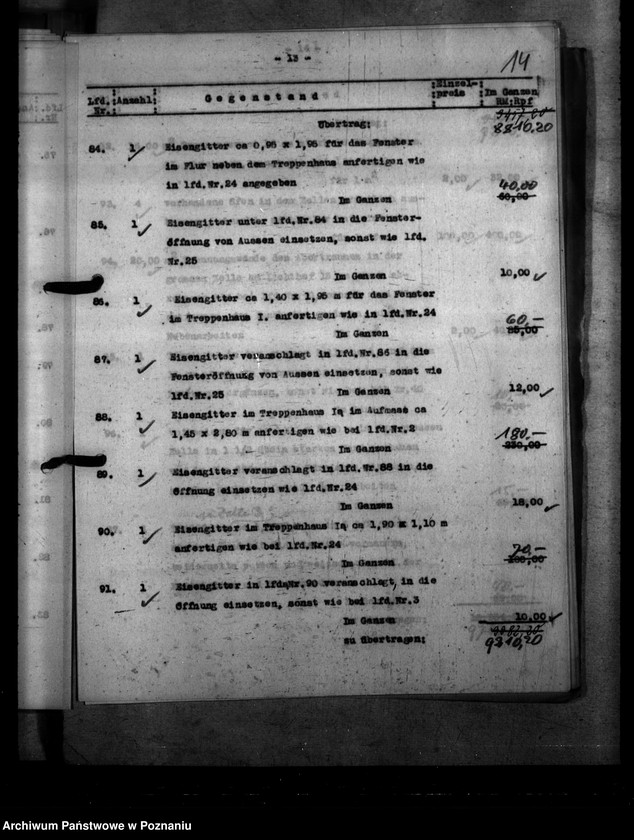 14
- 13 -
Lfd. Nr.: Anzahl: Gegenstand Einzel-preis Im Ganzen RM:Rpf
Übertrag: 8810,20
84. 1 Eisengitter ca 0,95 x 1,95 für das Fenster
im Flur neben dem Treppenhaus anfertigen wie
in lfd.Nr.24 angegeben 40,00
Im Ganzen 60,00
85. 1 Eisengitter unter lfd.Nr.84 in die Fenster-
öffnung von Aussen einsetzen, sonst wie lfd.
Nr.25
Im Ganzen 10,00
86. 1 Eisengitter ca 1,40 x 1,95 m für das Fenster
im Treppenhaus I. anfertigen wie in lfd.Nr.24 60.-
Im Ganzen
87. 1 Eisengitter veranschlagt in lfd.Nr.86 in die
Fensteröffnung von Aussen einsetzen, sonst wie
lfd.Nr.25 Im Ganzen 12,00
88. 1 Eisengitter im Treppenhaus im Aufmass ca
1,45 x 2,80 m anfertigen wie bei lfd.Nr.2 180.-
Im Ganzen 230,00
89. 1 Eisengitter veranschlagt in lfd.Nr.88 in die
Öffnung einsetzen wie lfd.Nr.24
Im Ganzen 18,00
90. 1 Eisengitter im Treppenhaus ca 1,90 x 1,10 m
anfertigen wie bei lfd.Nr.24 70.-
Im Ganzen
91. 1 Eisengitter in lfd.Nr.90 veranschlagt, in die
Öffnung einsetzen, sonst wie bei lfd.Nr.3
Im Ganzen 10,00
zu übertragen: 9210,20
Archiwum Państwowe w Poznaniu